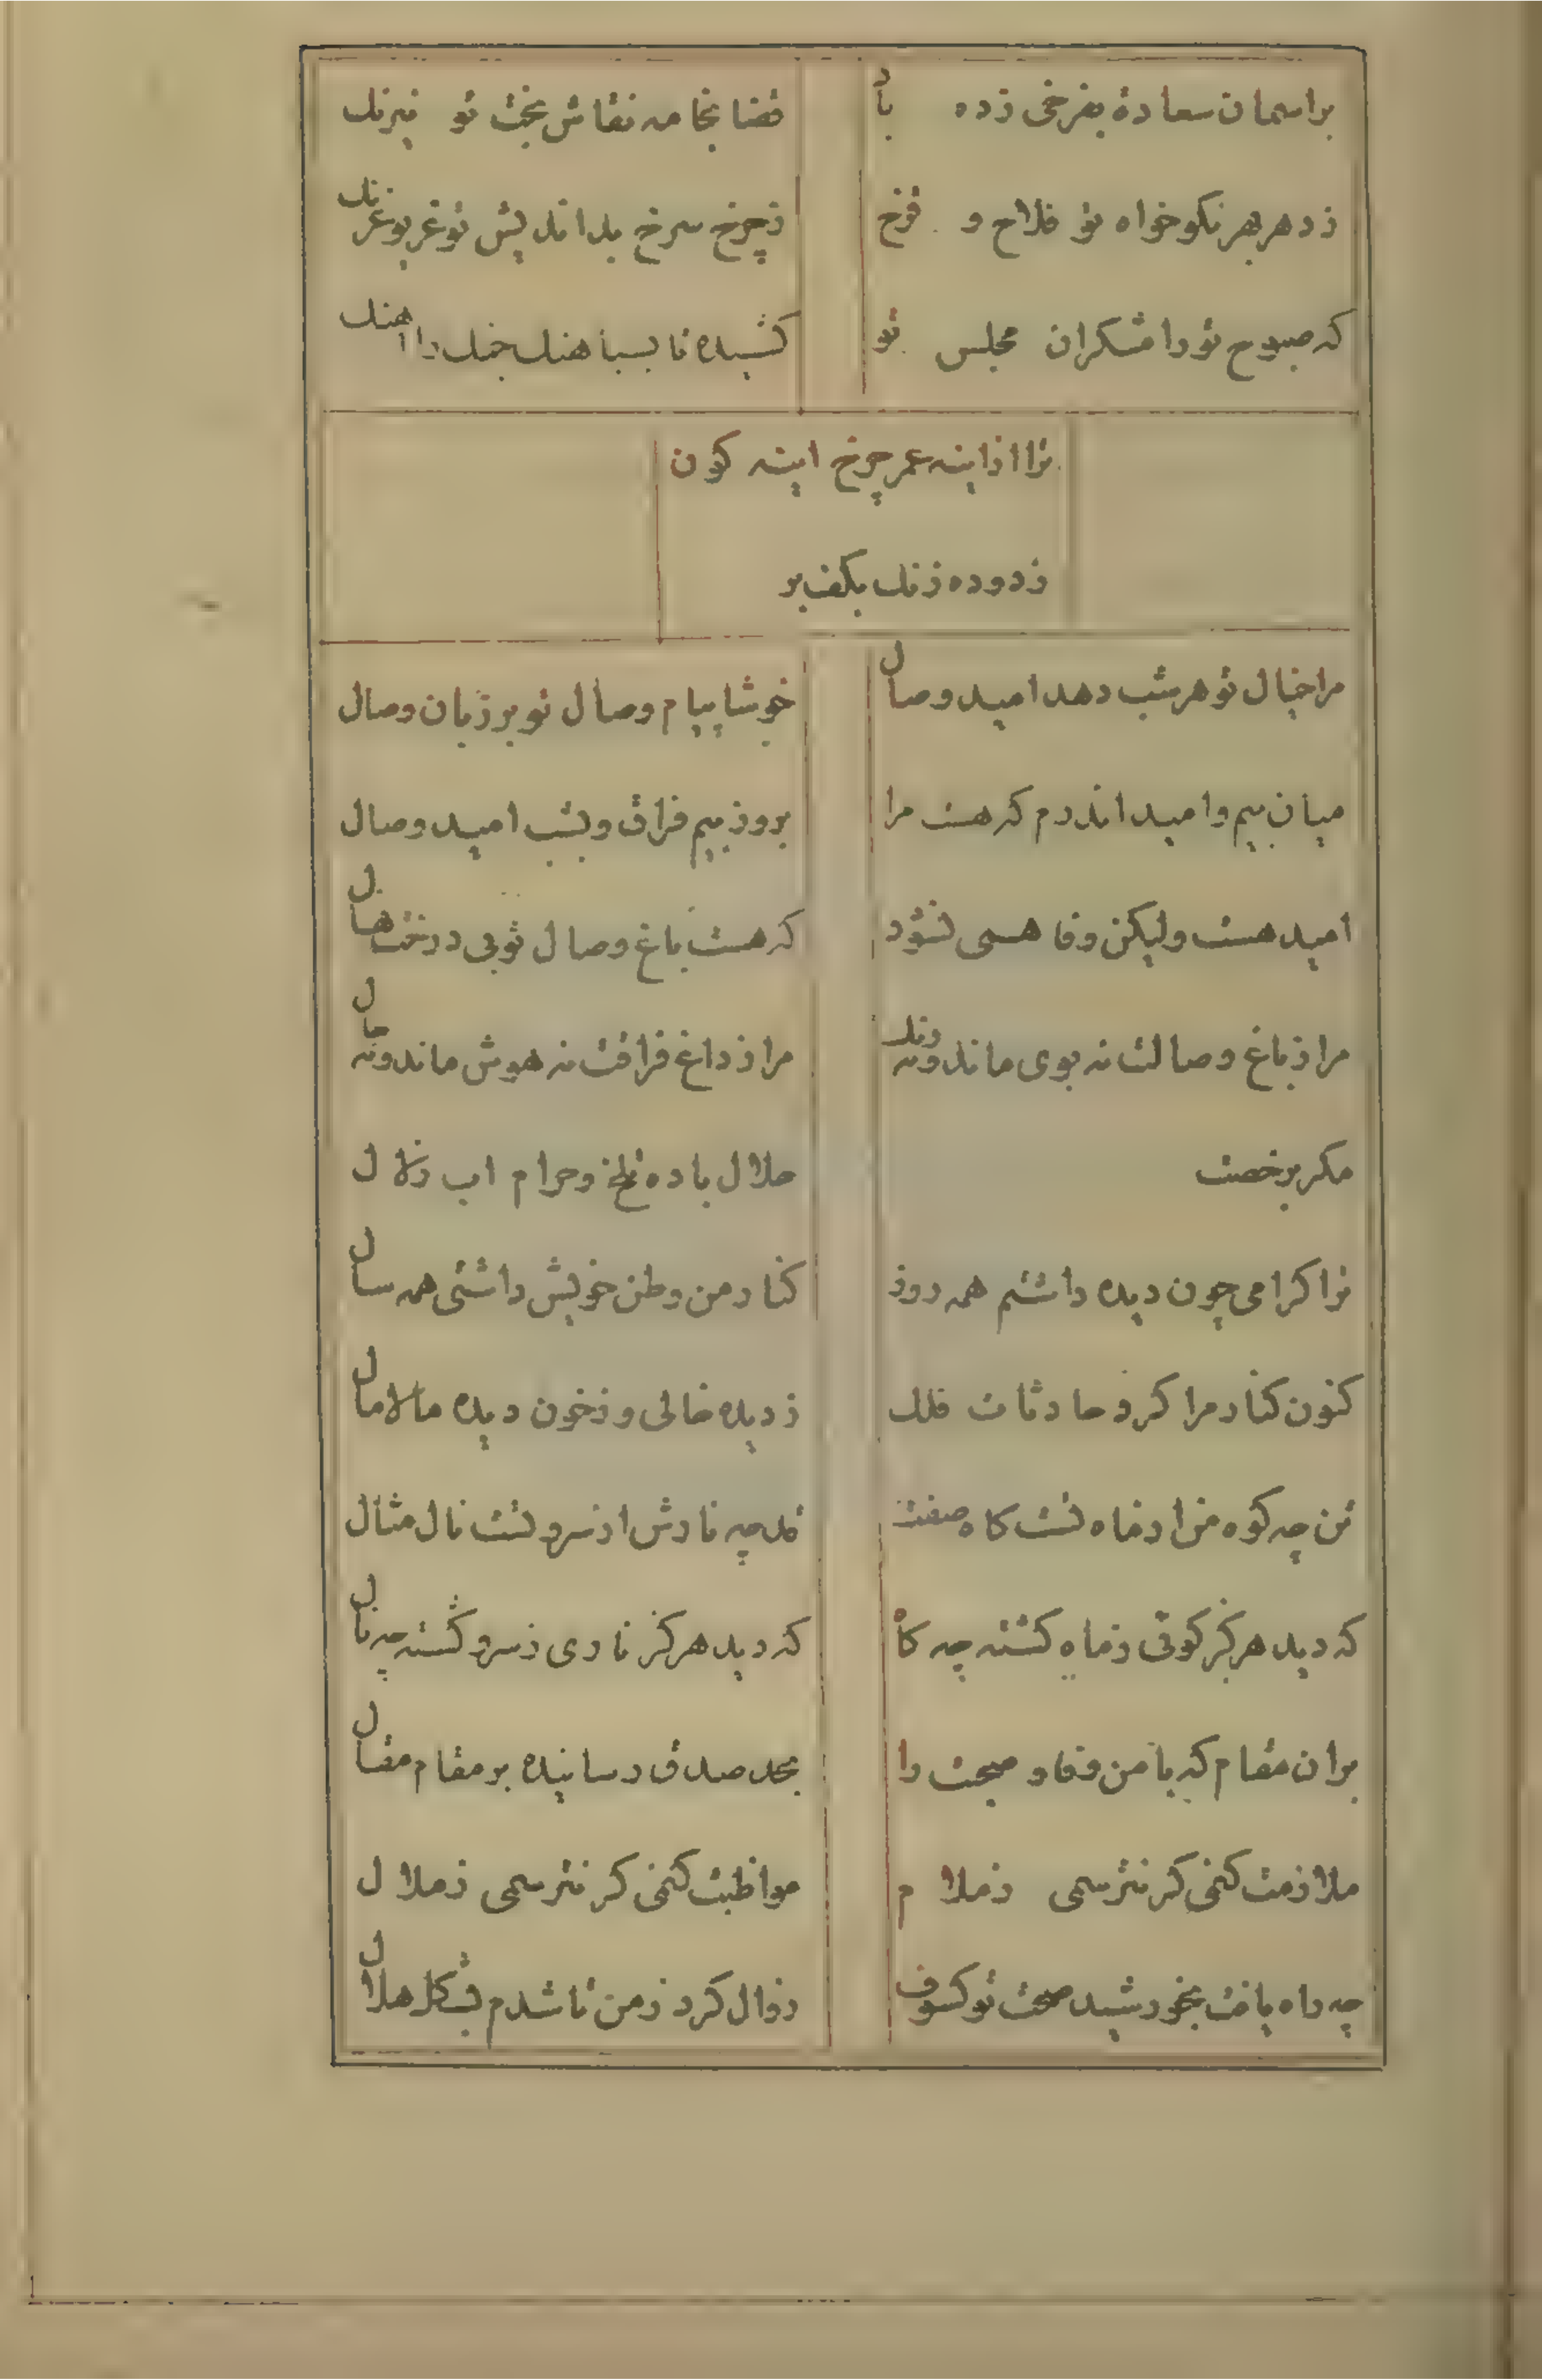 براسمان سعادة بفرخی زده باد
قضا بخامه نقاش بخت تو نیرنک
زدهر بهر نکو خواه تو فلاح و فرخ
زچرخ سرخ بداندیش تو غریو غرنک
که صبوح تو رامشکران مجلس تو
کشیده تا بسباهنک جنک را اهنک
ترا از اینه عمر چرخ اینه کون
زدوده زنک بکف بر
مرا خیال تو هر شب دهد امید وصال
خوشا پیام وصال تو بر زبان وصال
میان بیم و امید اندرم که هست مرا
بروز بیم فراق و بشب امید وصال
امید هست ولیکن وفا همی نشود
که هست باغ وصال تو بی درخت هال
مرا زباغ وصالت نه بوی ماند و نه رنک
مرا زداغ فراقت نه هوش ماند و نه حال
مکر برخصت
حلال باده تلخ و حرام اب زلال
ترا کرامی چون دیده داشتم همه روز
کنار من وطن خویش داشتی همه سال
کنون کنار مرا کرد حادثات فلک
زدیده خالی و زخون دیده مالامال
تن چه کوه من از ماه تست کاه صفت
قد چه نارش از سرو تست نال مثال
که دید هرکز کوهی زماه کشته چه کاه
که دید هرکز ناری زسرو کشته چه نال
بران مقام که با من وفا و صحبت را
بحد صدق رسانیده بر مقام مقال
ملازمت کنی کر نترسمی زملام
مواظبت کنمی کر نترسمی زملال
چه راه یافت بخورشید صحبت تو کسوف
زوال کرد زمن تا شدم بشکل هلال